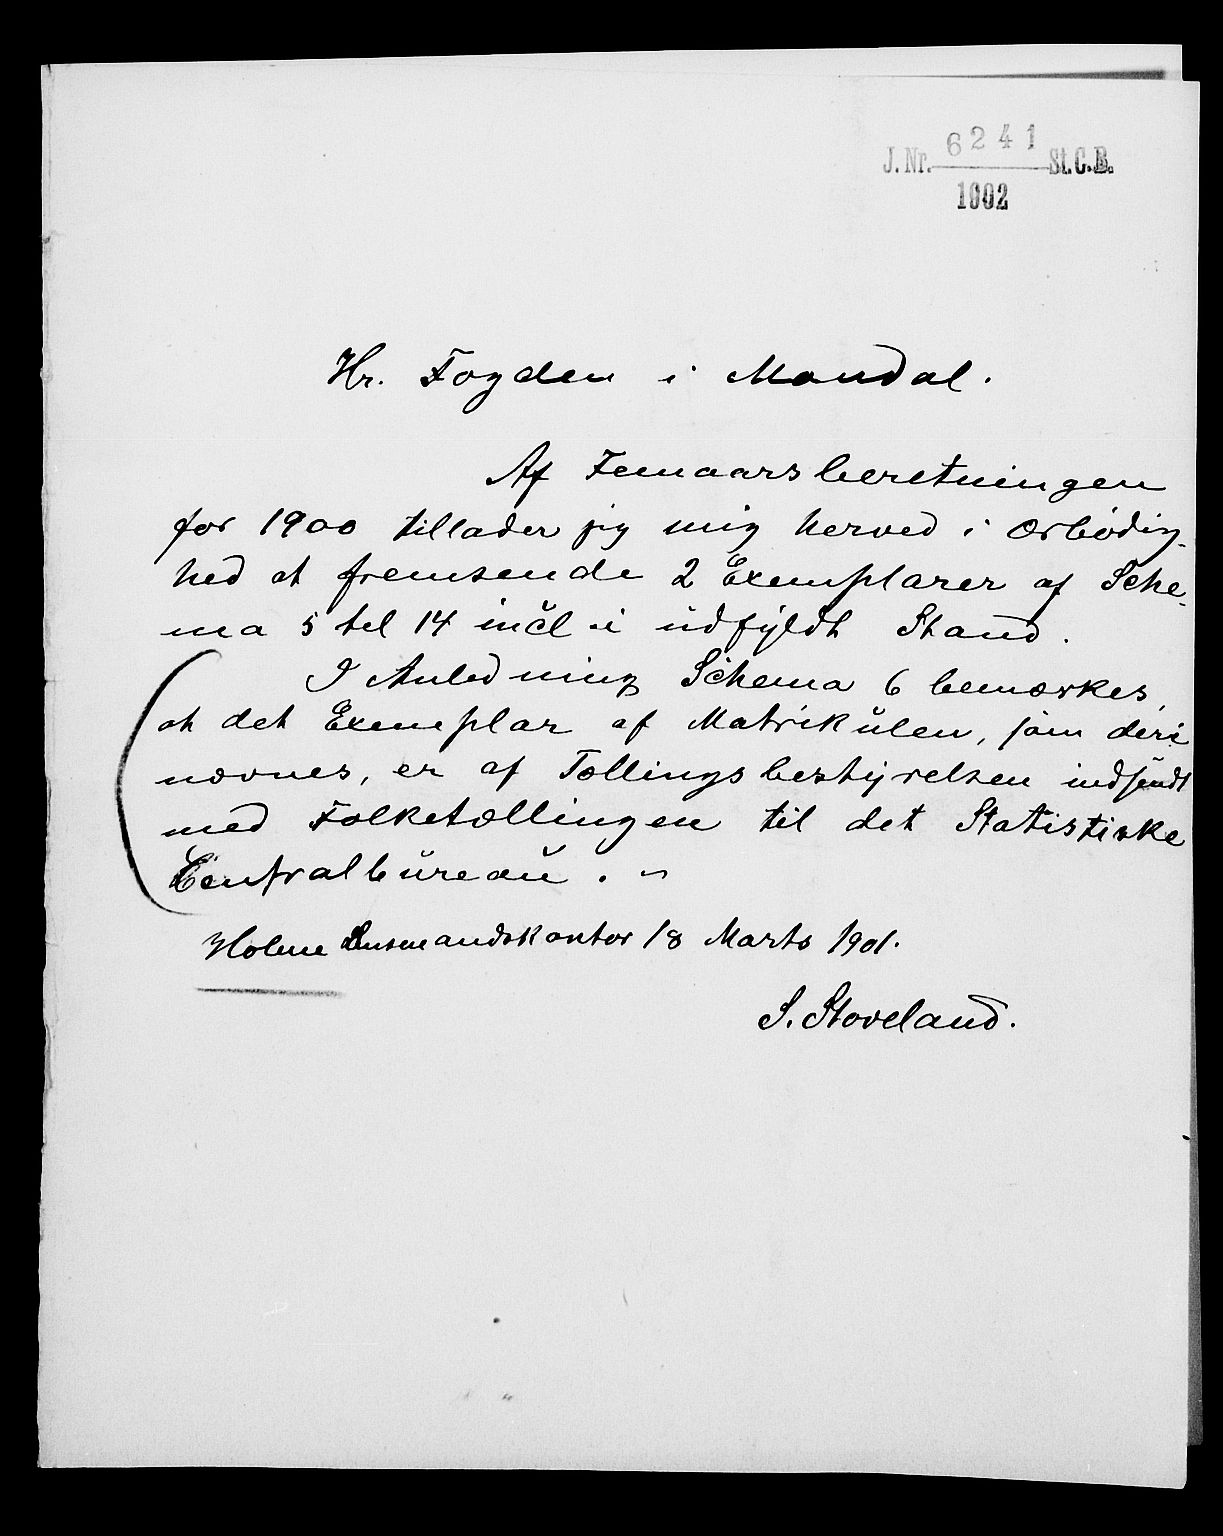 J. Nr. 6241 St. C. B.
1902
Hr. Fogden i Mandal.
Af Femaarsberetningen
for 1900 tillader jeg mig herved i ærbødig-
hed at fremsende 2 Exemplarer af Sche-
ma 5 til 14 incl i udfyldt Stand.
I Anledning Schema 6 bemærkes,
at det Exemplar af Matrikulen, som deri
nævnes, er af Tællingsbestyrelsen indsendt
med Folketællingen til det Statistiske
Centralbureau. "
Holme Lensmandskontor 18 Marts 1901.
S. Stoveland.